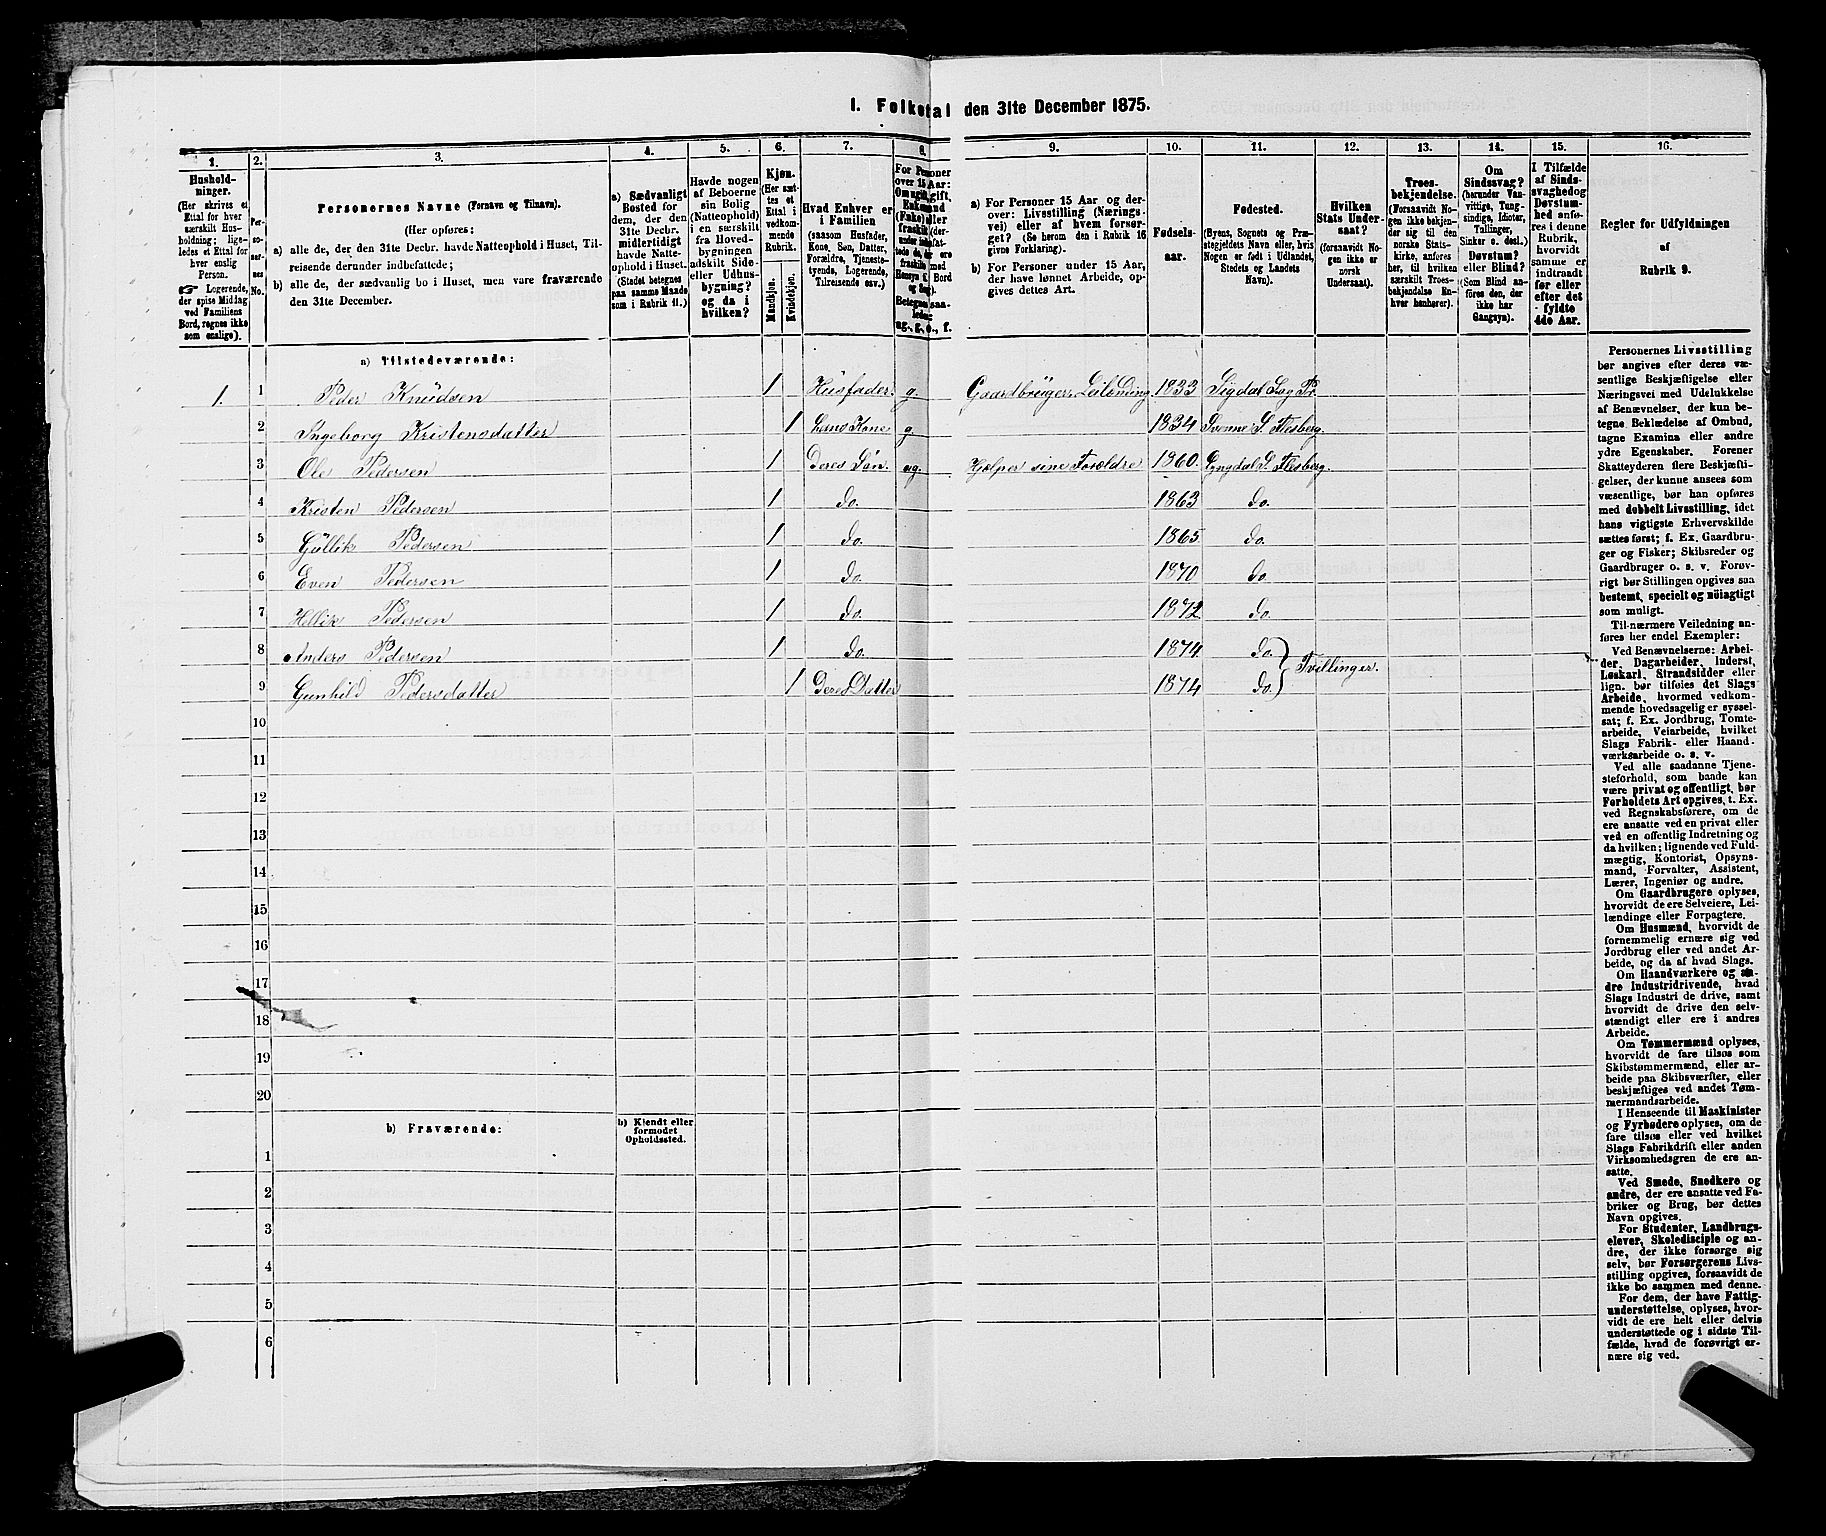 I. Folketal den 31te December 1875.
1.
2.
3.
4.
5.
6.
7.
8.
9.
10.
11.
12.
13.
14.
15.
16.
Hushold-
ninger.
(Her skrives et
Ettal for hver
særskilt Hus-
holdning; lige-
ledes et Ettal for
hver enslig
Person.
☞ Logerende,
der spise Middag
ved Familiens
Bord, regnes ikke
som enslige).
Per-
so-
ner-
nes
No.
Personernes Navne (Fornavn og Tilnavn).
(Her opføres:
a) alle de, der den 31te Decbr. havde Natteophold i Huset, Til-
reisende derunder indbefattede;
b) alle de, der sædvanlig bo i Huset, men vare fraværende
den 31te December.
a) Sædvanligt
Bosted for
dem, der den
31te Decbr.
midlertidigt
havde Natte-
ophold i Huset.
(Stedet betegnes
paa samme Maade
som i Rubrik 11.)
Havde nogen
af Beboerne
sin Bolig
(Natteophold)
i en særskilt
fra Hoved-
bygningen
adskilt Side-
eller Udhus-
bygning?
og da i
hvilken?
Kjøn.
(Her sæt-
tes et
Ettal i
vedkom-
mende
Rubrik.
Mandkjøn.
Kvindekjøn.
Hvad Enhver er
i Familien
(saasom Husfader,
Kone, Søn, Datter,
Forældre, Tjeneste-
tyende, Logerende,
Tilreisende osv.)
For Personer
over 15 Aar:
Betegnes saa-
ledes:
ug., g., e., f.
a) For Personer 15 Aar og der-
over: Livsstilling (Nærings-
vei) eller af hvem forsør-
get? (Se herom den i Rubrik 16
givne Forklaring).
b) For Personer under 15 Aar,
der have lønnet Arbeide, op-
gives dettes Art.
Fødsels-
aar.
Fødested.
(Byens, Sognets og Præ-
stegjeldets Navn eller, hvis
Nogen er født i Udlandet,
Stedets og Landets
Navn).
Hvilken
Stats Under-
saat?
(forsaavidt No-
gen ikke er
norsk
Undersaat).
Troes-
bekjendelse.
(Forsaavidt No-
gen ikke bekjen-
der sig til den
norske Stats-
kirke, anføres
her, til hvilken
særskilt Troes-
bekjendelse En-
hver henhører).
Om
Sindssvag?
(herunder Van-
vittige, Tung-
sindige, Idioter,
Tullinger,
Sinker o. desl.)
Døvstum?
eller Blind?
(Som Blind an-
føres den, der
ikke har
Gangsyn).
I Tilfælde
af Sinds-
svaghed og
Døvstum-
hed anfø-
res i denne
Rubrik,
hvorvidt
samme er
indtraadt
før eller
efter det
fyldte
4de Aar.
Regler for Udfyldningen
af
Rubrik 9.
a) Tilstedeværende:
1. 1 Peder Knudsen 1 Husfader g. Gaardbruger, Leilænding 1833 Sigdal S og Pr.
2 Ingeborg Kristensdatter 1 hans Kone g 1834 Svenne S. Flesberg
3 Ole Pedersen 1 Deres Søn. ug. Hjælper sine Forældre 1860 Lyngdal S. Flesberg.
4 Kristen Pedersen 1 do. 1863 do.
5 Gullik Pedersen 1 do. 1865 do.
6 Even Pedersen 1 do. 1870 do.
7 Hellik Pedersen 1 do. 1872 do.
8 Anders Pedersen 1 do. 1874 do. } Tvillinger.
9 Gunhild Pedersdatter 1 Deres Datter 1874 do. }
10
11
12
13
14
15
16
17
18
19
20
b) Fraværende:
b) Kjendt eller
formodet
Opholdssted.
1
2
3
4
5
6
Personernes Livsstilling
bør angives efter deres væ-
sentlige Beskjæftigelse eller
Næringsvei med Udelukkelse
af Benævnelser, der kun be-
tegne Beklædelse af Ombud,
tagne Examina eller andre
ydre Egenskaber. Forener
Skatteyderen flere Beskjæfti-
gelser, der kunne ansees som
væsentlige, bør han opføres
med dobbelt Livsstilling, idet
hans vigtigste Erhvervskilde
sættes først; f. Ex. Gaardbru-
ger og Fisker; Skibsreder og
Gaardbruger o. s. v. Forøv-
rigt bør Stillingen opgives saa
bestemt, specielt og nøiagtigt
som muligt.
Til nærmere Veiledning an-
føres her endel Exempler:
Ved Benævnelserne: Arbei-
der, Dagarbeider, Inderst,
Løskarl, Strandsidder eller
lign. bør tilføies det Slags
Arbeide, hvormed vedkom-
mende hovedsagelig er syssel-
sat; f. Ex. Jordbrug, Tomte-
arbeide, Veiarbeide, hvilket
Slags Fabrik- eller Haand-
værksarbeide o. s. v.
Ved alle saadanne Tjene-
steforhold, som baade kan
være privat og offentligt, bør
Forholdets Art opgives, t. Ex.
ved Regnskabsførere, om de
ere ansatte ved en privat eller
ved en offentlig Indretning og
da hvilken; lignende ved Fuld-
mægtig, Kontorist, Opsyns-
mand, Forvalter, Assistent,
Lærer, Ingeniør og andre.
Om Gaardbrugere oplyses,
hvorvidt de ere Selveiere, Lei-
lændinge eller Forpagtere.
Om Husmænd, hvorvidt de
fornemmelig ernære sig ved
Jordbrug eller ved andet Ar-
beide, og da af hvad Slags.
Om Haandværkere og an-
dre Industridrivende, hvad
Slags Industri de drive, samt
hvorvidt de drive den selv-
stændigt eller ere i andres
Arbeide.
Om Tømmermænd oplyses,
hvorvidt de fare tilsøs som
Skibstømmermænd, eller ar-
beide paa Skibsværfter, eller
beskjæftiges ved andet Tøm-
mermandsarbeide.
I Henseende til Maskinister
og Fyrbødere oplyses, om de
fare tilsøs eller ved hvilket
Slags Fabrikdrift eller anden
Virksomhedsgren de ere an-
satte.
Ved Smede, Snedkere og
andre, der ere ansatte ved Fa-
briker og Brug, bør dettes
Navn opgives.
For Studenter, Landbrugs-
elever, Skoledisciple og an-
dre, der ikke forsørge sig
selv, bør Forsørgerens Livs-
stilling opgives, forsaavidt de
ikke bo sammen med denne.
For dem, der have Fattig-
understøttelse, oplyses, hvor-
vidt de ere helt eller delvis
understøttede og i sidste Til-
fælde, hvad de forøvrigt er-
nære sig ved.